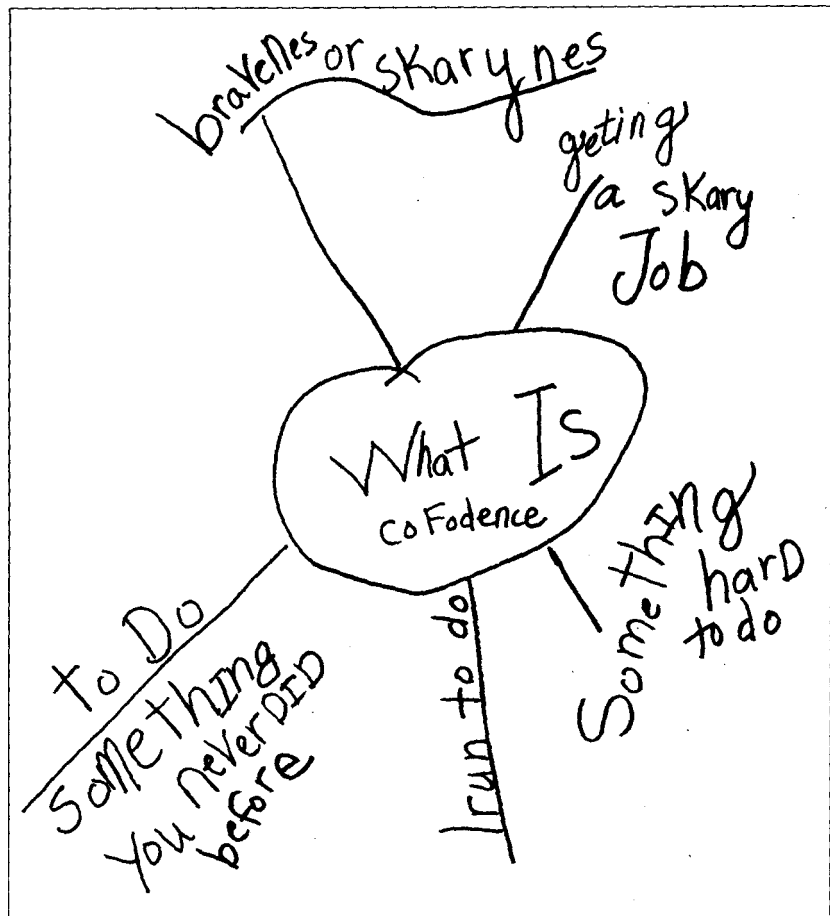 braveNes or skarynes
geting
a skary
Job
What Is
coFodence
Something
harD
to do
lrun to do
to Do
SomethIng
You never DID
before